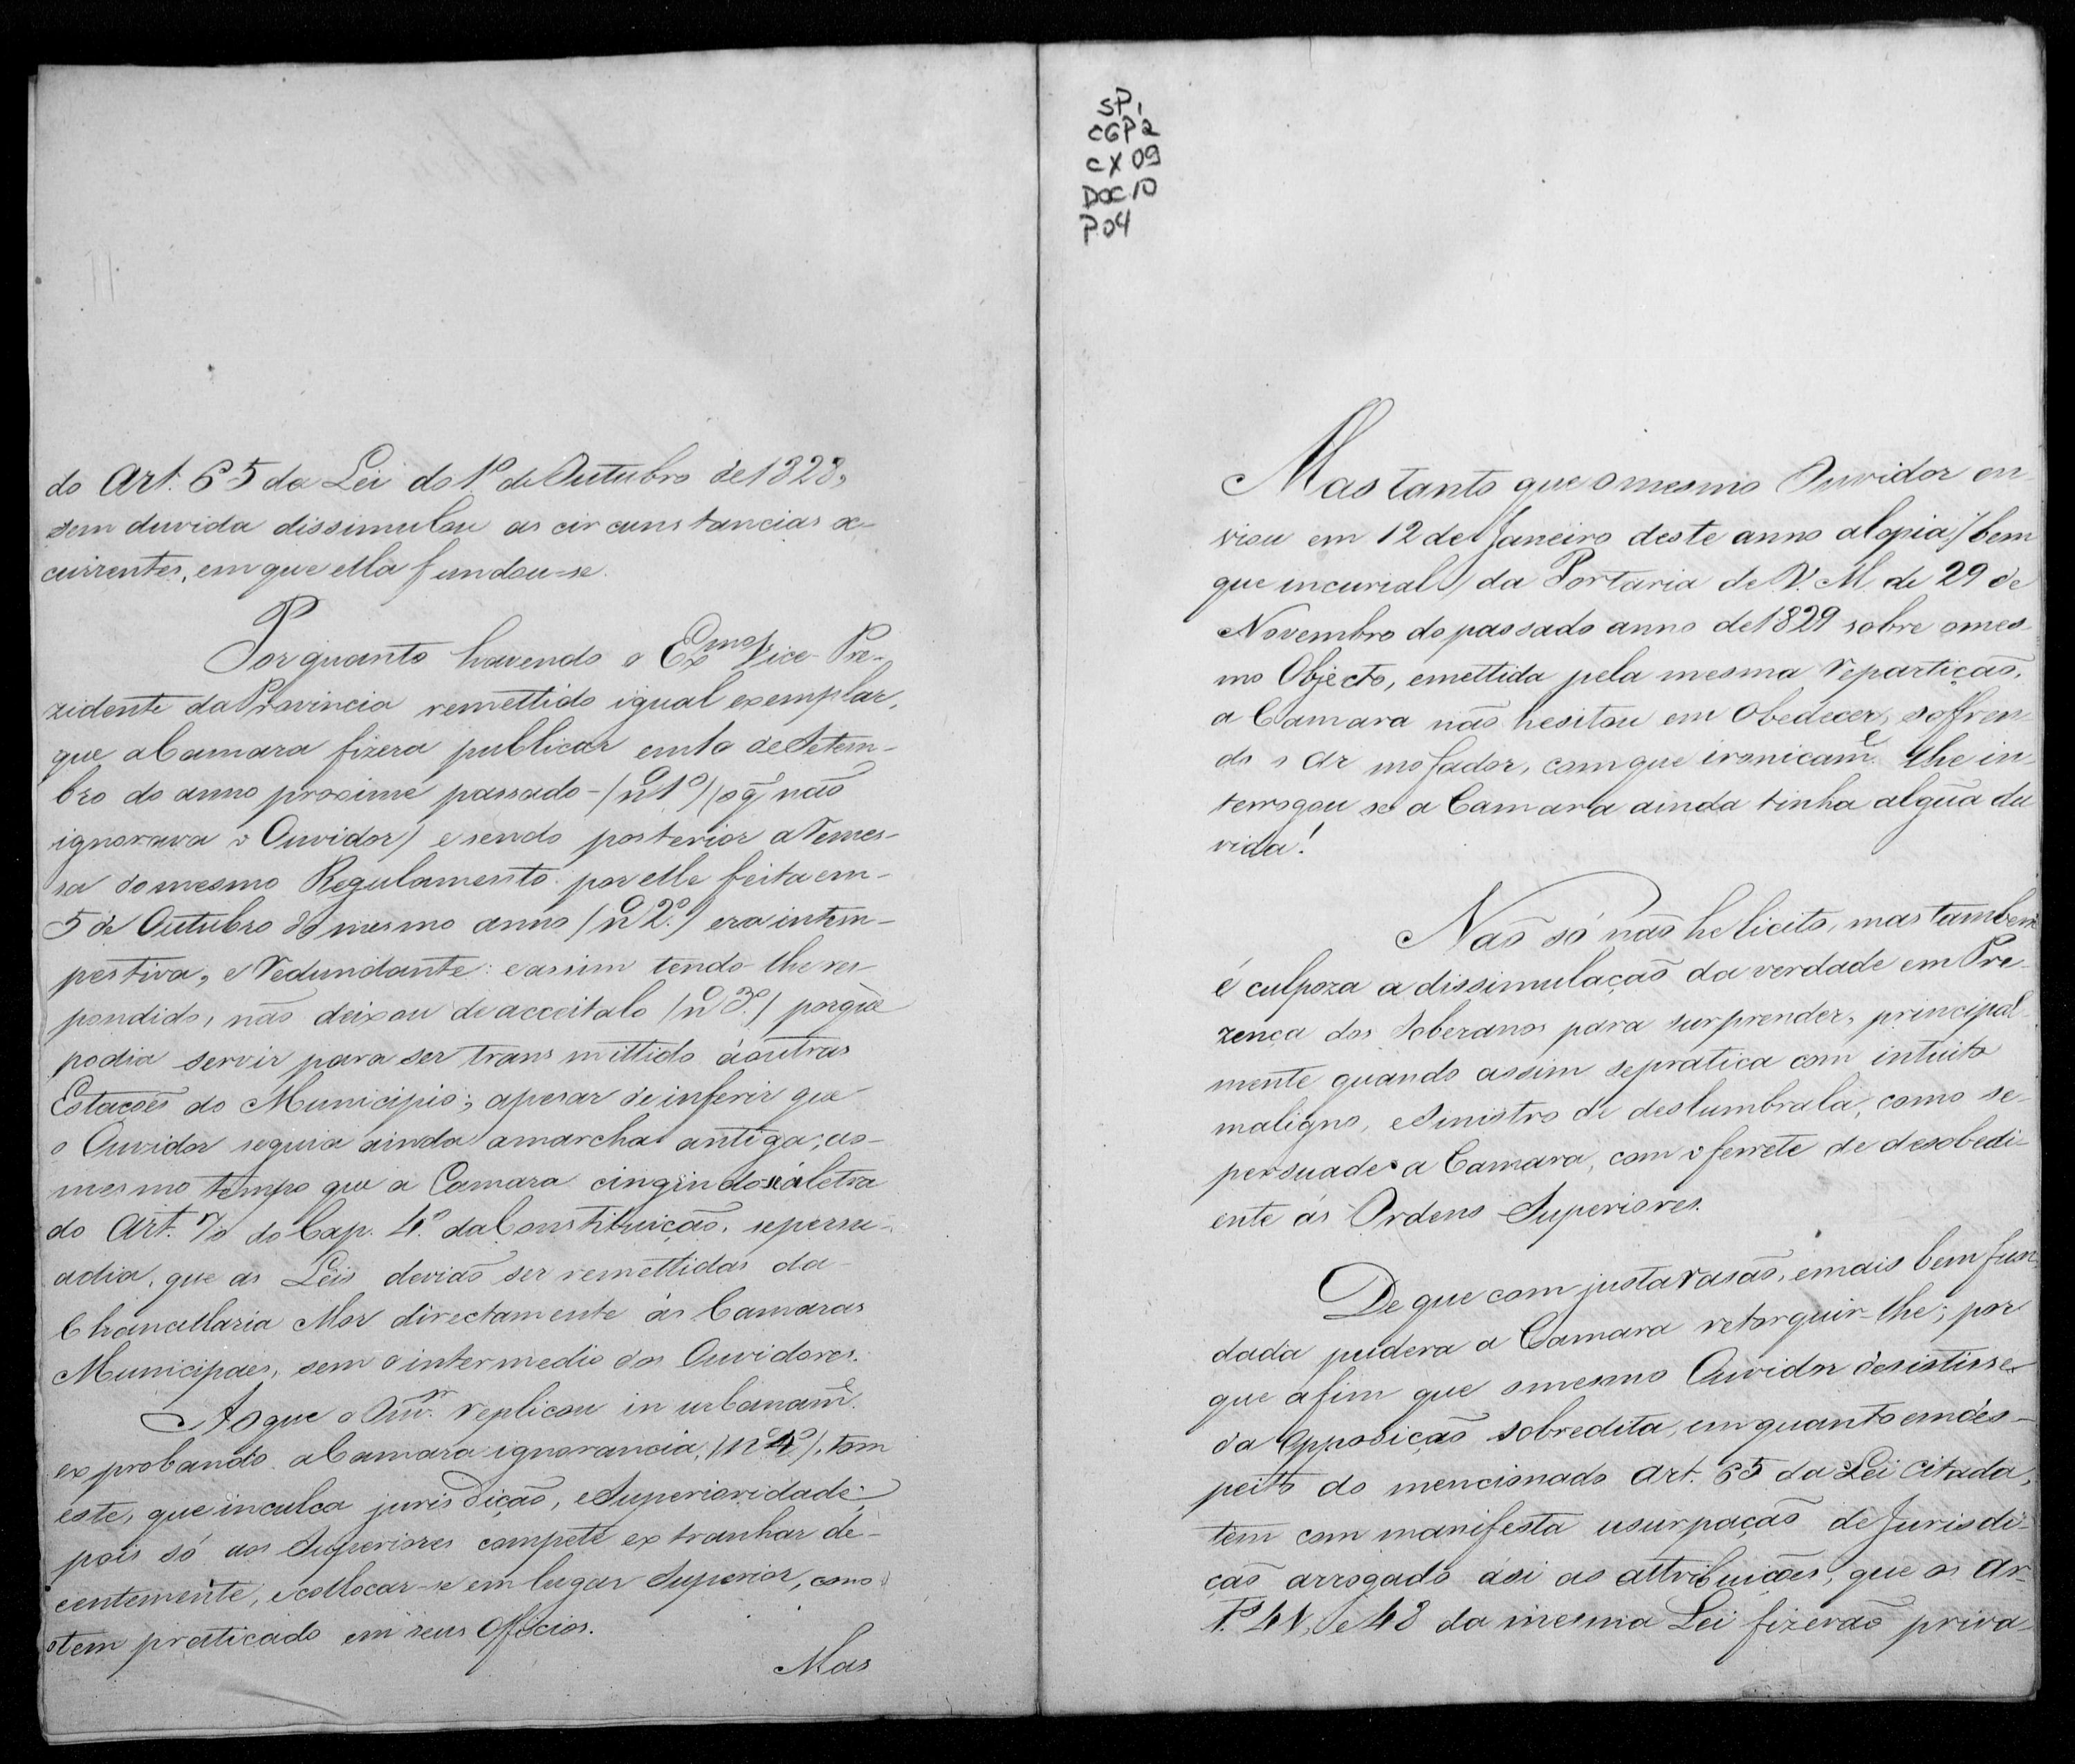 do Art. 65 da Lei do 1º de Outubro de 1828,
sem duvida dissimulou as circunstancias oc-
currentes, em que ella fundou-se.
Porquanto havendo o Exmo Vice-Pre-
zidente da Provincia remettido igual exemplar,
que a Camara fizera publicar em 10 de Setem-
bro do anno proxime passado - (nº 1º) (o q̃ não
ignorava o Ouvidor) e sendo posterior a remes-
sa do mesmo Regulamento por elle feita em
5 de Outubro do mesmo anno (nº 2º) era intem-
pestiva, e redundante: e assim tendo-lhe res-
pondido, não deixou de acceitalo (nº 3º) porque
podia servir para ser transmittido á outras
Estacoẽs do Municipio; apesar de inferir que
o Ouvidor seguia ainda a marcha antiga; ao-
mesmo tempo que a Camara cingindo-se á letra
do Art. 70 do Cap. 4º da Constituição, se persu-
adia, que as Leis devião ser remettidas da-
Chancellaria Mor directamente ás Camaras
Municipaes, sem o intermedio dos Ouvidores.
Ao que o Ouvr. replicou inurbaname.
exprobando a Camara ignorancia, (nº 4º), tom
este, que inculca jurisdição, e Superioridade;
pois só aos Superiores compete extranhar de-
centemente, e collocar-se em lugar Superior, como
o tem praticado em seus Officios.
Mas
SP1
CGP2
CX 09
DOC 10
P.04
Mas tanto que o mesmo Ouvidor en-
viou em 12 de Janeiro deste anno a Copia (bem
que incurial) da Portaria de V. M. de 29 de
Novembro do passado anno de 1829 sobre o mes-
mo Objecto, emettida pela mesma repartição,
a Camara não hesitou em Obedecer, soffren-
do o ar mofador, com que ironicame. lhe in-
terrogou se a Camara ainda tinha algũa du-
vida!
Não só não he licito, mas tambem
é culpoza a dissimulação da verdade em Pre-
zença dos Soberanos para surprender, principal-
mente quando assim se pratica com intuito
maligno, e Sinistro de deslumbrala, como se-
persuade a Camara, com o ferrete de desobedi-
ente ás Ordens Superiores.
De que com justa rasão, e mais bem fun-
dada pudera a Camara retorquir-lhe; por
que áfim que o mesmo Ouvidor desistisse
da Opposição sobredita, em quanto em des-
peito do mencionado Art. 65 da Lei Citada,
tem com manifesta usurpação de Jurisdi-
ção arrogado ási as attribuicões, que os Ar-
tos. 47, e 48 da mesma Lei fizerão priva-